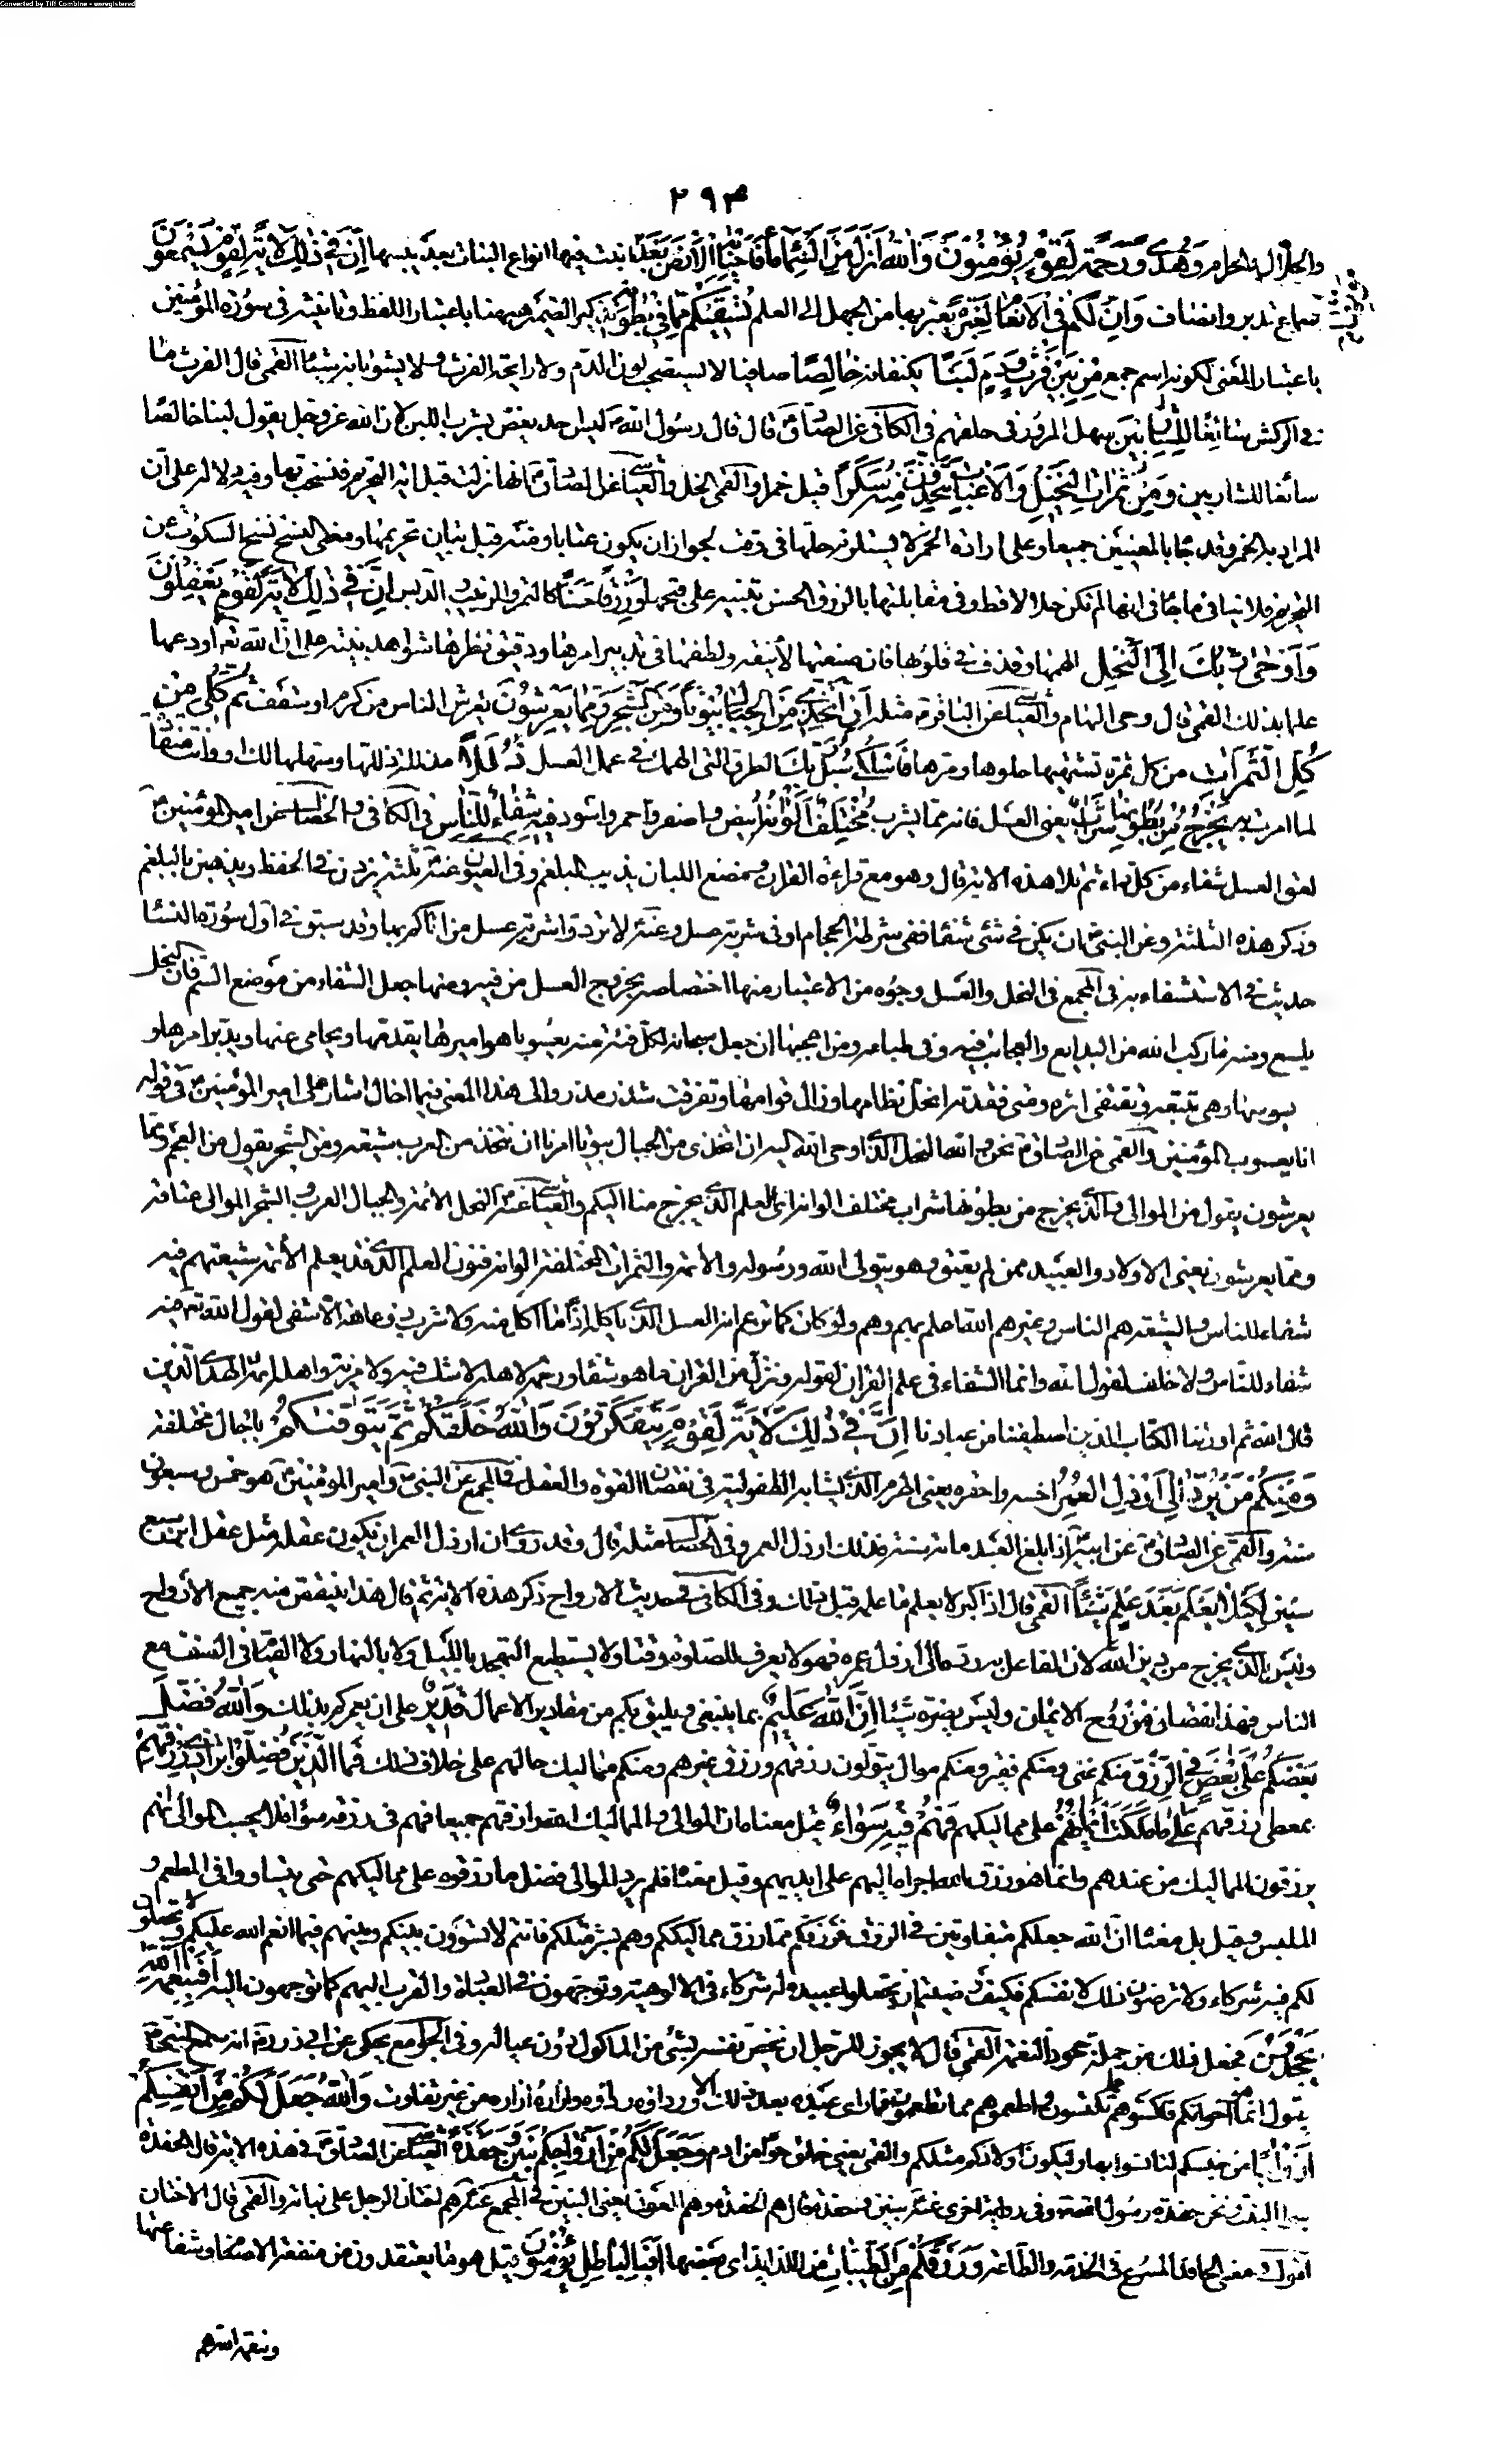 Converted by Tiff Combine - unregistered
٢٩٣
والحلال والحرام وَهُدىً وَرَحْمَةً لِقَوْمٍ يُؤْمِنُونَ وَاللهُ أَنْزَلَ مِنَ السَّمَاءِ مَاءً فَأَحْيَا بِهِ الْأَرْضَ بَعْدَ مَوْتِهَا انبت فيها انواع النبات بعد يبسها إِنَّ فِي ذَلِكَ لَآيَةً لِقَوْمٍ يَسْمَعُونَ
سماع تدبر وانصاف وَإِنَّ لَكُمْ فِي الْأَنْعَامِ لَعِبْرَةً يعتبر بها من الجهل الى العلم نُسْقِيكُمْ مِمَّا فِي بُطُونِهِ تذكير الضمير ههنا باعتبار اللفظ وتانيثه في سورة المؤمنين
باعتبار المعنى لكونه اسم جمع مِنْ بَيْنِ فَرْثٍ وَدَمٍ لَبَنًا يكتنفانه خَالِصًا صافيا لا يستصحب لون الدم ولا رايحة الفرث ولا يشوبانه شيئا القمي قال الفرث ما
في الكرش سَائِغًا لِلشَّارِبِينَ سهل المرور في حلقهم في الكافي عن الصادق قال قال رسول الله ليس احد يغص بشرب اللبن لان الله عز وجل يقول لبنا خالصا
سائغا للشاربين وَمِنْ ثَمَرَاتِ النَّخِيلِ وَالْأَعْنَابِ تَتَّخِذُونَ مِنْهُ سَكَرًا قيل خمرا والقمي الخل والعياشي عن الصادق انها نزلت قبل اية التحريم فنسخت بها وفيه دلالة على ان
المراد به الخمر وقد جاء بالمعنيين جميعا وعلى ارادة الخمر لا يستلزم حلها في وقت لجواز ان يكون عتابا ومنة قبل بيان تحريمها ومعنى النسخ نسخ السكوت عن
التحريم فلا ينافي ما جاء في انها لم تكن حلالا قط وفي مقابلتها بالرزق الحسن تنبيه على قبحها وَرِزْقًا حَسَنًا كالتمر والزبيب والدبس إِنَّ فِي ذَلِكَ لَآيَةً لِقَوْمٍ يَعْقِلُونَ
وَأَوْحَى رَبُّكَ إِلَى النَّحْلِ الهمها وقذف في قلوبها فان صنعتها الأنيقة ولطفها في تدبير امرها ودقيق نظرها شواهد بينة على ان الله تعم اودعها
علما بذلك القمي قال وحي الهام والعياشي عن الباقر مثله أَنِ اتَّخِذِي مِنَ الْجِبَالِ بُيُوتًا وَمِنَ الشَّجَرِ وَمِمَّا يَعْرِشُونَ يعرش الناس من كرم او سقف ثُمَّ كُلِي مِنْ
كُلِّ الثَّمَرَاتِ من كل ثمرة تشتهيها حلوها ومرها فَاسْلُكِي سُبُلَ رَبِّكِ الطرق التي الهمك في عمل العسل ذُلُلًا مذللة ذللها وسهلها لك او وانت منقادة
لما امرت به يَخْرُجُ مِنْ بُطُونِهَا شَرَابٌ يعني العسل فانه مما يشرب مُخْتَلِفٌ أَلْوَانُهُ ابيض واصفر واحمر واسود فِيهِ شِفَاءٌ لِلنَّاسِ في الكافي والخصال عن امير المؤمنين
لعق العسل شفاء من كل داء ثم تلا هذه الاية قال وهو مع قراءة القران ومضغ اللبان يذيب البلغم وفي العيون عنه ثلثة يزدن في الحفظ ويذهبن بالبلغم
وذكر هذه الثلثة وعن النبي ان يكن في شيء شفاء ففي شرطة الحجام او في شربة عسل وعنه لا تردوا شربة عسل من اتاكم بها وقد سبق في اول سورة النساء
حديث في الاستشفاء به في المجمع في النحل والعسل وجوه من الاعتبار منها اختصاصه بخروج العسل من فيه ومنها جعل الشفاء من موضع السم فان النحل
يلسع ومنه ما ركب الله من البدايع والعجائب فيه وفي طباعه ومن اعجبها ان جعل سبحانه لكل فئة منه يعسوبا هو اميرها يقدمها ويحامي عنها ويدبر امرها و
يسوسها وهي تتبعه وتقتفي اثره ومتى فقدته انحل نظامها وزال قوامها وتفرقت شذر مذر والى هذا المعنى فيما اخال اشار علي امير المؤمنين في قوله
انا يعسوب المؤمنين والقمي عن الصادق نحن والله النحل الذي اوحى الله اليه ان اتخذي من الجبال بيوتا امرنا ان نتخذ من العرب شيعة ومن الشجر يقول من العجم ومما
يعرشون يقول من الموالي والذي يخرج من بطونها شراب مختلف الوانه اي العلم الذي يخرج منا اليكم والعياشي عنه النحل الائمة والجبال العرب والشجر الموالي عتاقة
ومما يعرشون يعني الاولاد والعبيد ممن لم يعتق وهو يتولى الله ورسوله والائمة والثمرات المختلفة الوانه فنون العلم الذي قد يعلم الأئمة شيعتهم فيه
شفاء للناس والشيعة هم الناس وغيرهم الله اعلم بهم وهم ولو كان كما تزعم انه العسل الذي ياكله الناس اذا ما اكل منه ولا شرب ذو عاهة الا شفي لقول الله تعم فيه
شفاء للناس ولا خلف لقول الله وانما الشفاء في علم القران لقوله وننزل من القران ما هو شفاء ورحمة لاهله لا شك فيه ولا مرية واهله ائمة الهدى الذين
قال الله ثم اورثنا الكتاب الذين اصطفينا من عبادنا إِنَّ فِي ذَلِكَ لَآيَةً لِقَوْمٍ يَتَفَكَّرُونَ وَاللهُ خَلَقَكُمْ ثُمَّ يَتَوَفَّاكُمْ باجال مختلفة
وَمِنْكُمْ مَنْ يُرَدُّ إِلَى أَرْذَلِ الْعُمُرِ اخسه واحقره يعني الهرم الذي يشابه الطفولية في نقصان القوة والعقل في المجمع عن النبي وامير المؤمنين هو خمس وسبعون
سنة والقمي عن الصادق عن ابيه اذا بلغ العبد مائة سنة فذلك ارذل العمر وفي الخصال مثله قال وقد روي ان ارذل العمر ان يكون عقله مثل عقل ابن سبع
سنين لِكَيْلَا يَعْلَمَ بَعْدَ عِلْمٍ شَيْئًا القمي قال اذا كبر لا يعلم ما علمه قبل ذلك وفي الكافي في حديث الارواح ذكر هذه الاية ثم قال فهذا ينتقص منه جميع الأرواح
وليس بالذي يخرج من دين الله لان الفاعل به رده الى ارذل عمره فهو لا يعرف للصلوة وقتا ولا يستطيع التهجد بالليل ولا بالنهار ولا القيام في الصف مع
الناس فهذا نقصان من روح الايمان وليس يضره شيئا إِنَّ اللهَ عَلِيمٌ بما ينبغي ويليق بكم من مقادير الاعمال قَدِيرٌ على ان يعمركم بذلك وَاللهُ فَضَّلَ
بَعْضَكُمْ عَلَى بَعْضٍ فِي الرِّزْقِ فمنكم غني ومنكم فقير ومنكم موال يتولون رزقهم ورزق غيرهم ومنكم مماليك حالهم على خلاف ذلك فَمَا الَّذِينَ فُضِّلُوا بِرَادِّي رِزْقِهِمْ
بمعطي رزقهم عَلَى مَا مَلَكَتْ أَيْمَانُهُمْ على مماليكهم فَهُمْ فِيهِ سَوَاءٌ قيل معناه ان الموالي والمماليك الله رازقهم جميعا فهم في رزقه سواء فلا يحسب الموالي انهم
يرزقون المماليك من عندهم وانما هو رزق الله اجراه اليهم على ايديهم وقيل معناه فلم يرد الموالي فضل ما رزقوه على مماليكهم حتى يتساووا في المطعم و
الملبس وقيل بل معناه ان الله جعلكم متفاوتين في الرزق فرزقكم مما رزق مماليككم وهم بشر مثلكم فانتم لا تسوون بينكم وبينهم فيما انعم الله عليكم ولا تجعلون
لكم فيه شركاء ولا ترضون ذلك لانفسكم فكيف رضيتم ان تجعلوا عبيده له شركاء في الالوهية وتوجهون في العبادة والقرب اليهم كما توجهون اليه أَفَبِنِعْمَةِ اللهِ
يَجْحَدُونَ فجعل ذلك من جملة جحود النعمة القمي قال لا يجوز للرجل ان يخص نفسه بشيء من الماكول دون عياله وفي الجوامع يحكى عن ابي ذر ره انه سمع النبي
يقول انما هم اخوانكم فاكسوهم مما تكتسون واطعموهم مما تطعمون فما راى عبده بعد ذلك الا ورداؤه رداؤه وازاره ازاره من غير تفاوت وَاللهُ جَعَلَ لَكُمْ مِنْ أَنْفُسِكُمْ
أَزْوَاجًا من جنسكم لتانسوا بها وليكون اولادكم مثلكم والقمي يعني خلق حوا من ادم وَجَعَلَ لَكُمْ مِنْ أَزْوَاجِكُمْ بَنِينَ وَحَفَدَةً العياشي عن الصادق في هذه الاية قال الحفدة
بنو البنت ونحن حفدة رسول الله وفي رواية اخرى عنه بنين وحفدة قال هم الحفدة وهم العون يعني البنين في المجمع عنه هم اختان الرجل على بناته والقمي قال الاختان
اقول معنى الحافد المسرع في الخدمة والطاعة وَرَزَقَكُمْ مِنَ الطَّيِّبَاتِ من اللذايذ اي بعضها أَفَبِالْبَاطِلِ يُؤْمِنُونَ قيل هو ما يعتقدون من منفعة الاصنام وشفاعتها
وبنعمة الله هم